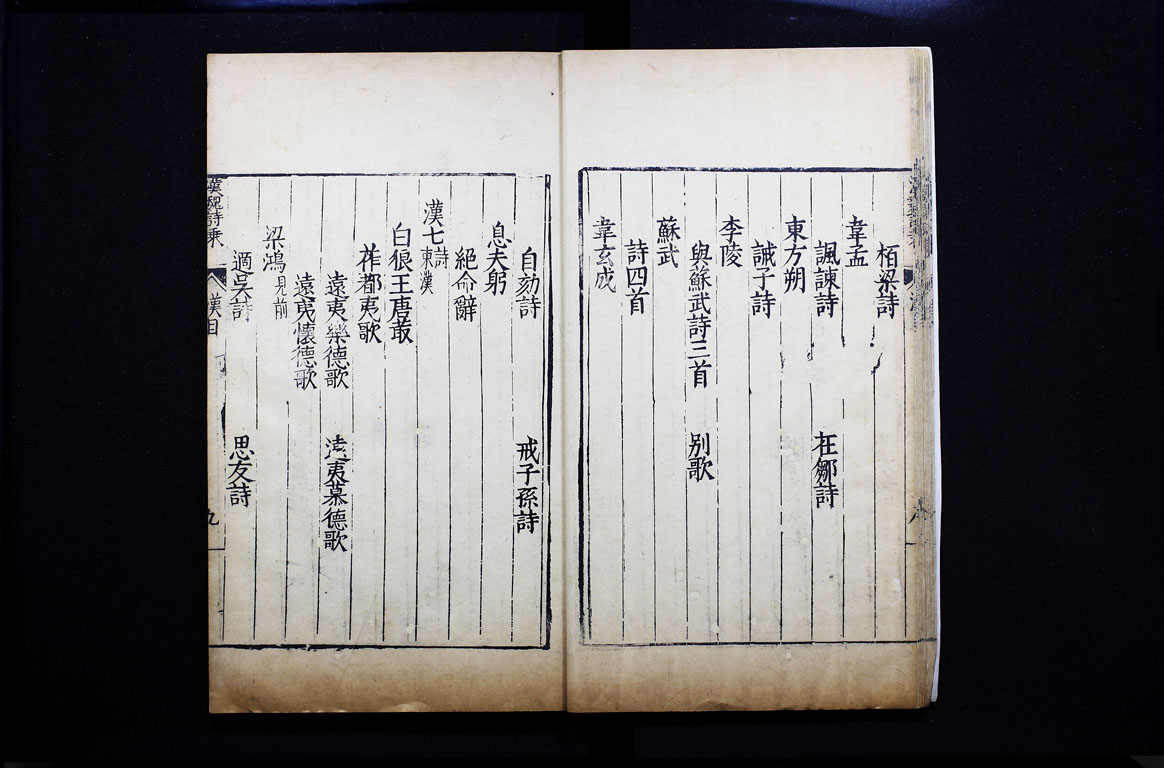 栢梁詩
韋孟
諷諫詩 在鄒詩
東方朔
誡子詩
李陵
與蘇武詩三首 别歌
蘇武
詩四首
韋玄成
自劾詩 戒子孫詩
息夫躬
絕命辭
漢七詩東漢
白狼王唐菆
莋都夷歌
遠夷樂德歌 遠夷慕德歌
遠夷懷德歌
梁鴻見前
適吳詩 思友詩
漢魏詩乗 漢目 九